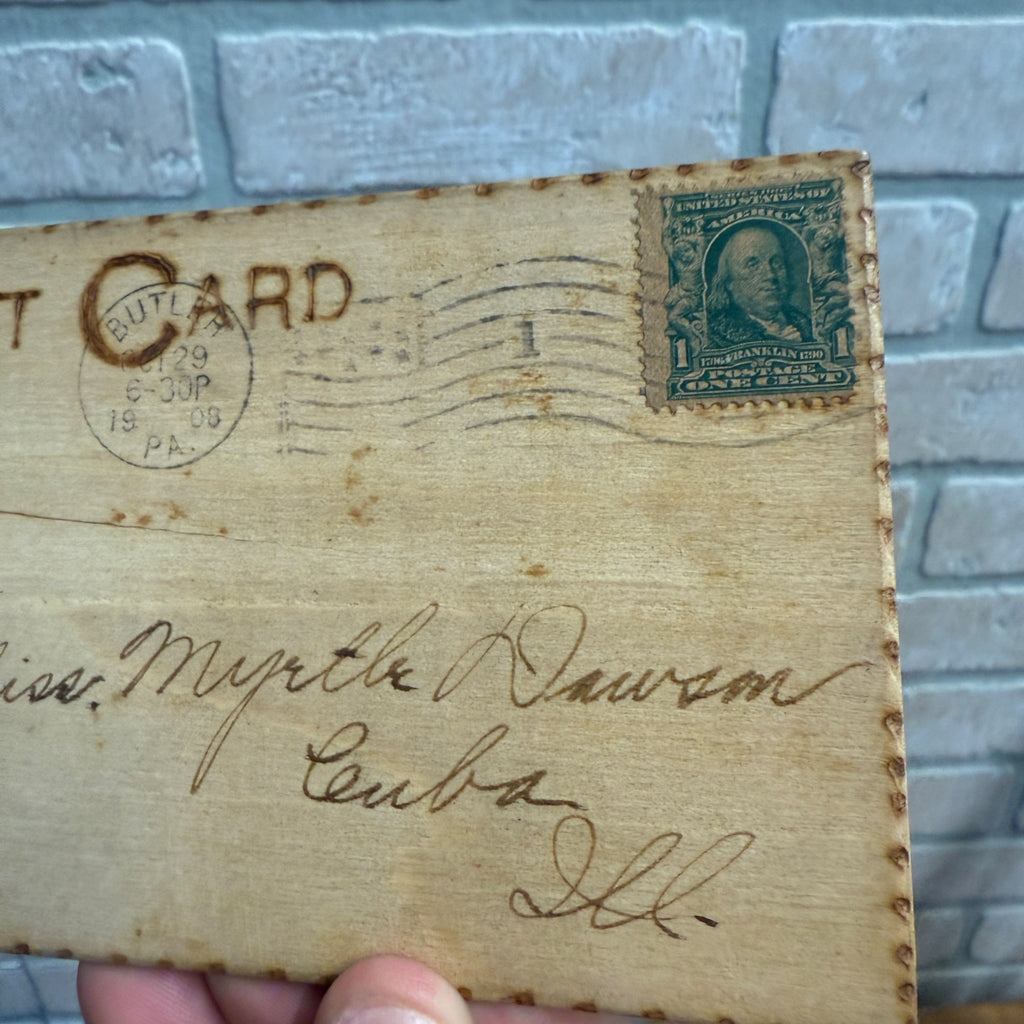 T CARD
BUTLER
OCT 29
6-30P
19 08
PA.
1
SERIES 1902
UNITED STATES OF
AMERICA
1 1
1706 FRANKLIN 1790
POSTAGE
ONE CENT
iss. Myrtle Dawson
Cuba
Ill.